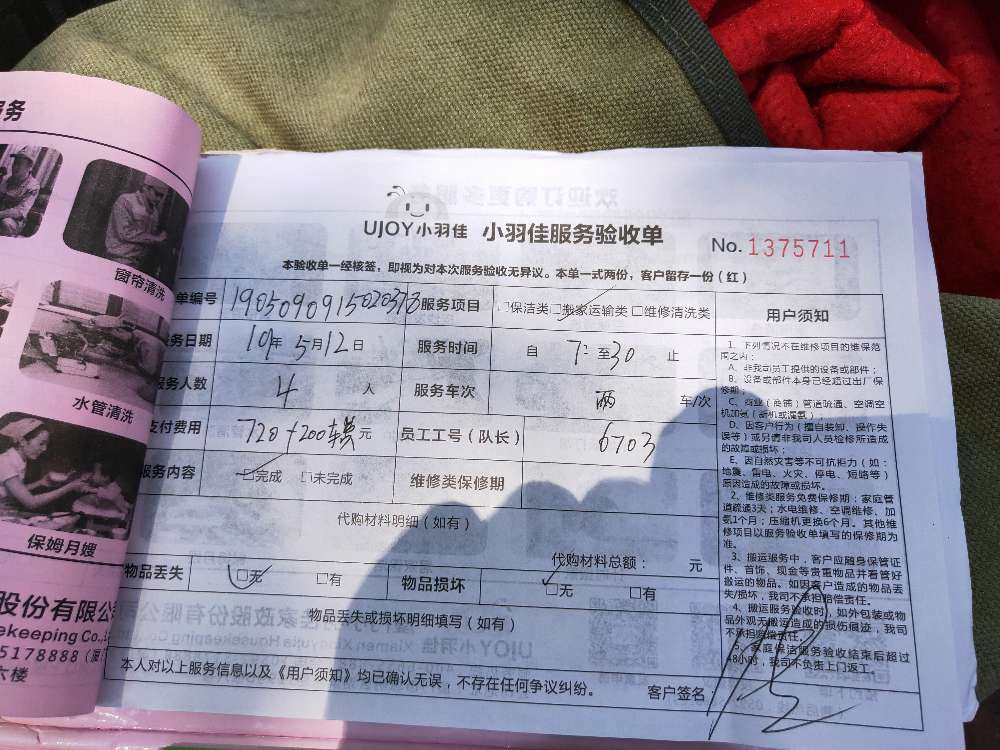 务
窗帘清洗
水管清洗
保姆月嫂
股份有限公
ekeeping Co.,
5178888
六楼
UJOY小羽佳 小羽佳服务验收单
No. 1375711
本验收单一经核签，即视为对本次服务验收无异议。本单一式两份，客户留存一份（红）
单编号 服务项目 □保洁类□搬家运输类□维修清洗类
服务日期 19年 5月12日 服务时间 自 7: 至30 止
服务人数 4 人 服务车次 两 车/次
支付费用 720+200 元 员工工号（队长） 6703
服务内容 □完成 □未完成 维修类保修期
代购材料明细（如有）
代购材料总额： 元
物品丢失 □无 □有 物品损坏 □无 □有
物品丢失或损坏明细填写（如有）
本人对以上服务信息以及《用户须知》均已确认无误，不存在任何争议纠纷。
客户签名：
用户须知
1、下列情况不在维修项目的维保范
围之内：
A、非我司员工提供的设备或部件；
B、设备或部件本身已经超过出厂保
修期；
C、商业（商铺）管道疏通、空调空
机加氨（新机或漏氨）；
D、因客户行为（擅自装卸、操作失
误等）或另请非我司人员检修所造成
的故障或损坏；
E、因自然灾害等不可抗拒力（如：
地震、雷电、火灾、停电、短路等）
原因造成的故障或损坏。
2、维修类服务免费保修期：家庭管
道疏通3天；水电维修、空调维修、加
氨1个月；压缩机更换6个月。其他维
修项目以服务验收单填写的保修期为
准。
3、搬运服务中，客户应随身保管证
件、首饰、现金等贵重物品并看管好
搬运的物品。如因客户造成的物品丢
失/损坏，我司不承担赔偿责任。
4、搬运服务验收时，如外包装或物
品外观无搬运造成的损伤痕迹，我司
不承担赔偿责任。
5、家庭保洁服务验收结束后超过
48小时，我司不负责上门返工。